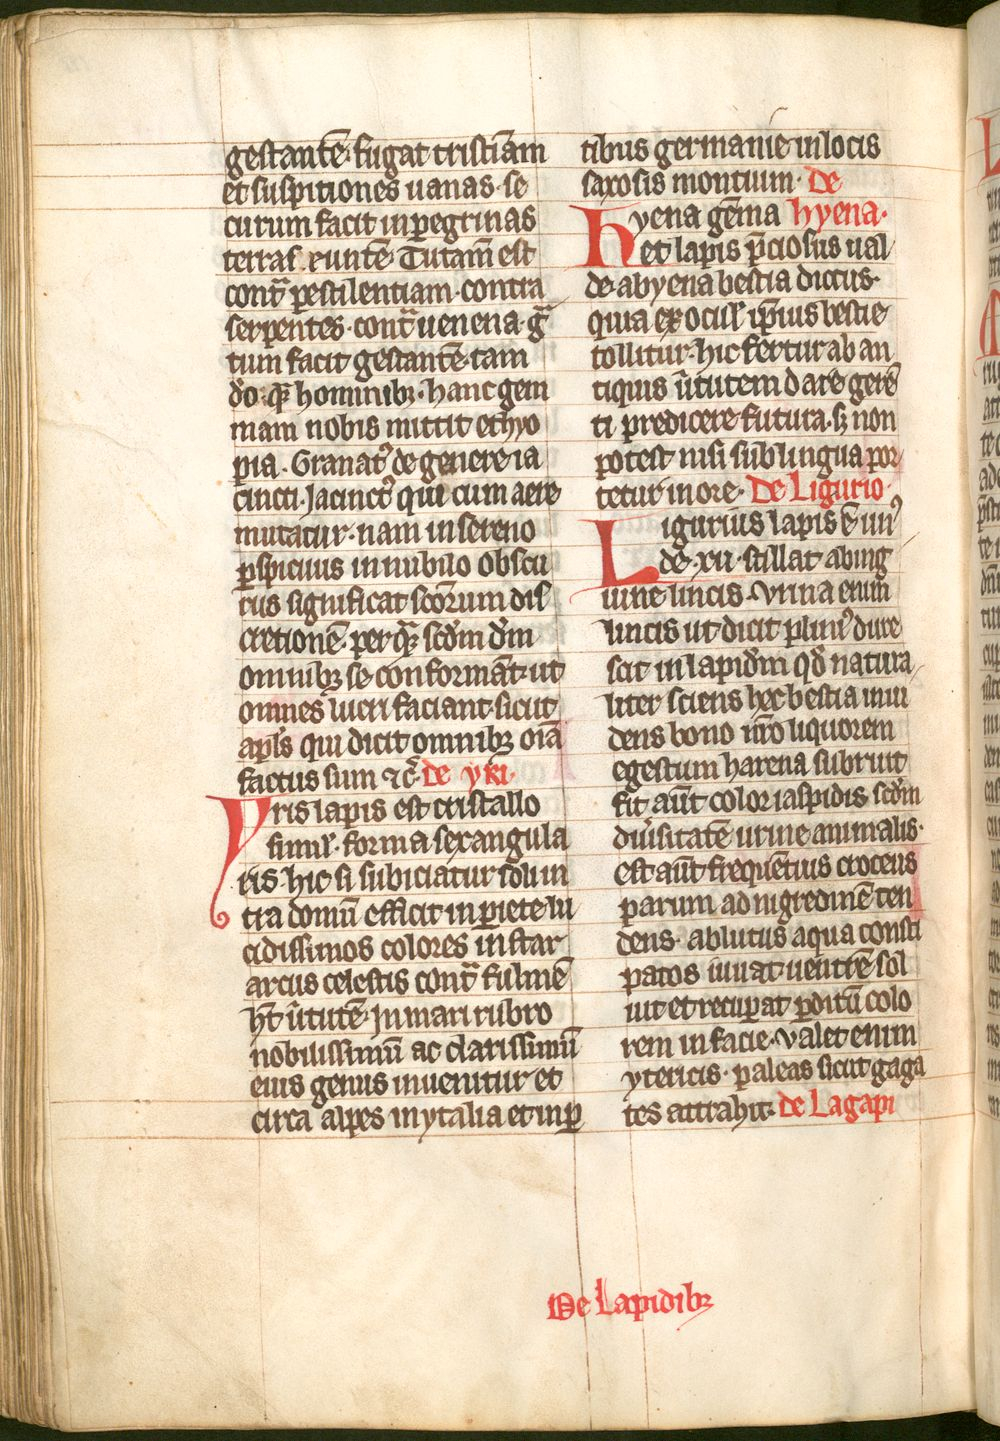 gestantē· fugat tristiām
et suspitiones uanas· se
curum facit in pegrinas
terras eūntē· Tutam est
cont̄ pestilentiam· contra
serpentes· cont̄ uenena· gͣ
tum facit gestantē· tam
d̄o· qͣ hominibꝫ· hanc gem
mam nobis mittit ethyo
pia· Granatꝰ de genere ia
cincti· Jacinctꝰ qui cum aere
mutatur· nam in sereno
ꝑspicuus in nubilo obscu
rus significat scōrum dis
cretionē· per quā scdm dm
omnibꝫ se conformāt· ut
omnes lucri faciant· sicut
apls qui dicit omnibꝫ oīa
factus sum ⁊c̄· de yri·
Yris lapis est cristallo
simil· forma sexangula
ris· hic si subiciatur soli in
tra domū efficit in piete lu
cidissimos colores instar
arcus celestis cont̄ fulmē
h̄t ūtutē· In mari rubro
nobilissimū ac clarissimū
eius genus inuenitur et
circa alpes in ytalia et in ꝑ
tibus germanie in locis
saxosis montium· de
hyena gēma hyena·
et lapis p̄ciosus ual
de· ab yena bestia dictus·
quia ex ocul ip̄ius bestie
tollitur· hic fertur ab an
tiquis ūtutem dare gerē
ti predicere futura· sꝫ non
potest nisi sub lingua por
tetur in ore· De Ligurio·
Ligurius lapis ē unꝰ
de· xii· stillat ab ing
uine lincis· Vrina enim
lincis ut dicit pliniꝰ dure
scit in lapidm qd natura
liter sciens hec bestia inui
dens bono nr̄o liquorem
egestum harena subruit
fit aūt color iaspidis scdm
diūsitatē urine animalis·
est aūt frequentius croceus
parum ad nigredinē ten
dens· ablutus aqua consti
patos iuuat uentrē sol
uit et recuꝑat ꝑditū colo
rem in facie· Valet enim
ytericis· paleas sicut gaga
tes attrahit· de Lagapi
De Lapidibꝫ